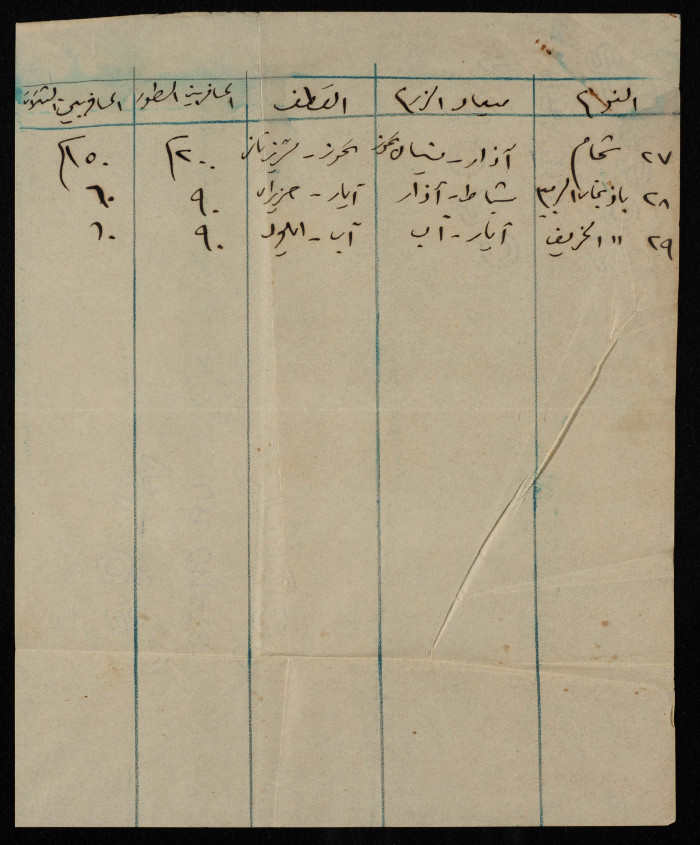 النوع ميعاد الزرع القطف المسافة بين السطور المسافة بين الشتلات
٢٧ شمام آذار - نيسان تموز تموز - ٢٠٠ ١٥٠
٢٨ باذنجان الربيع شباط - آذار آيار - حزيران ٩٠ ٦٠
٢٩ " الخريف آيار - آب آب - ايلول ٩٠ ٦٠